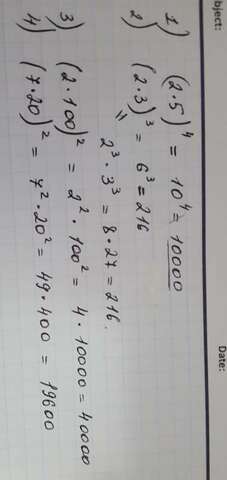 bject:
Date:
1) (2·5)⁴ = 10⁴ = 10000
2) (2·3)³ = 6³ = 216
"
2³·3³ = 8·27 = 216.
3) (2·100)² = 2²·100² = 4·10000 = 40000
4) (7·20)² = 7²·20² = 49·400 = 19600